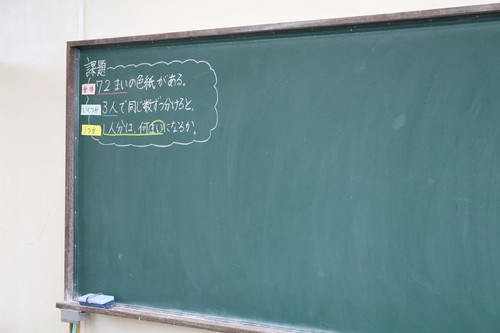 課題
全体 72まいの色紙がある。
いくつ分 3人で同じ数ずつ分けると、
1つ分 1人分は、何まいになるか。